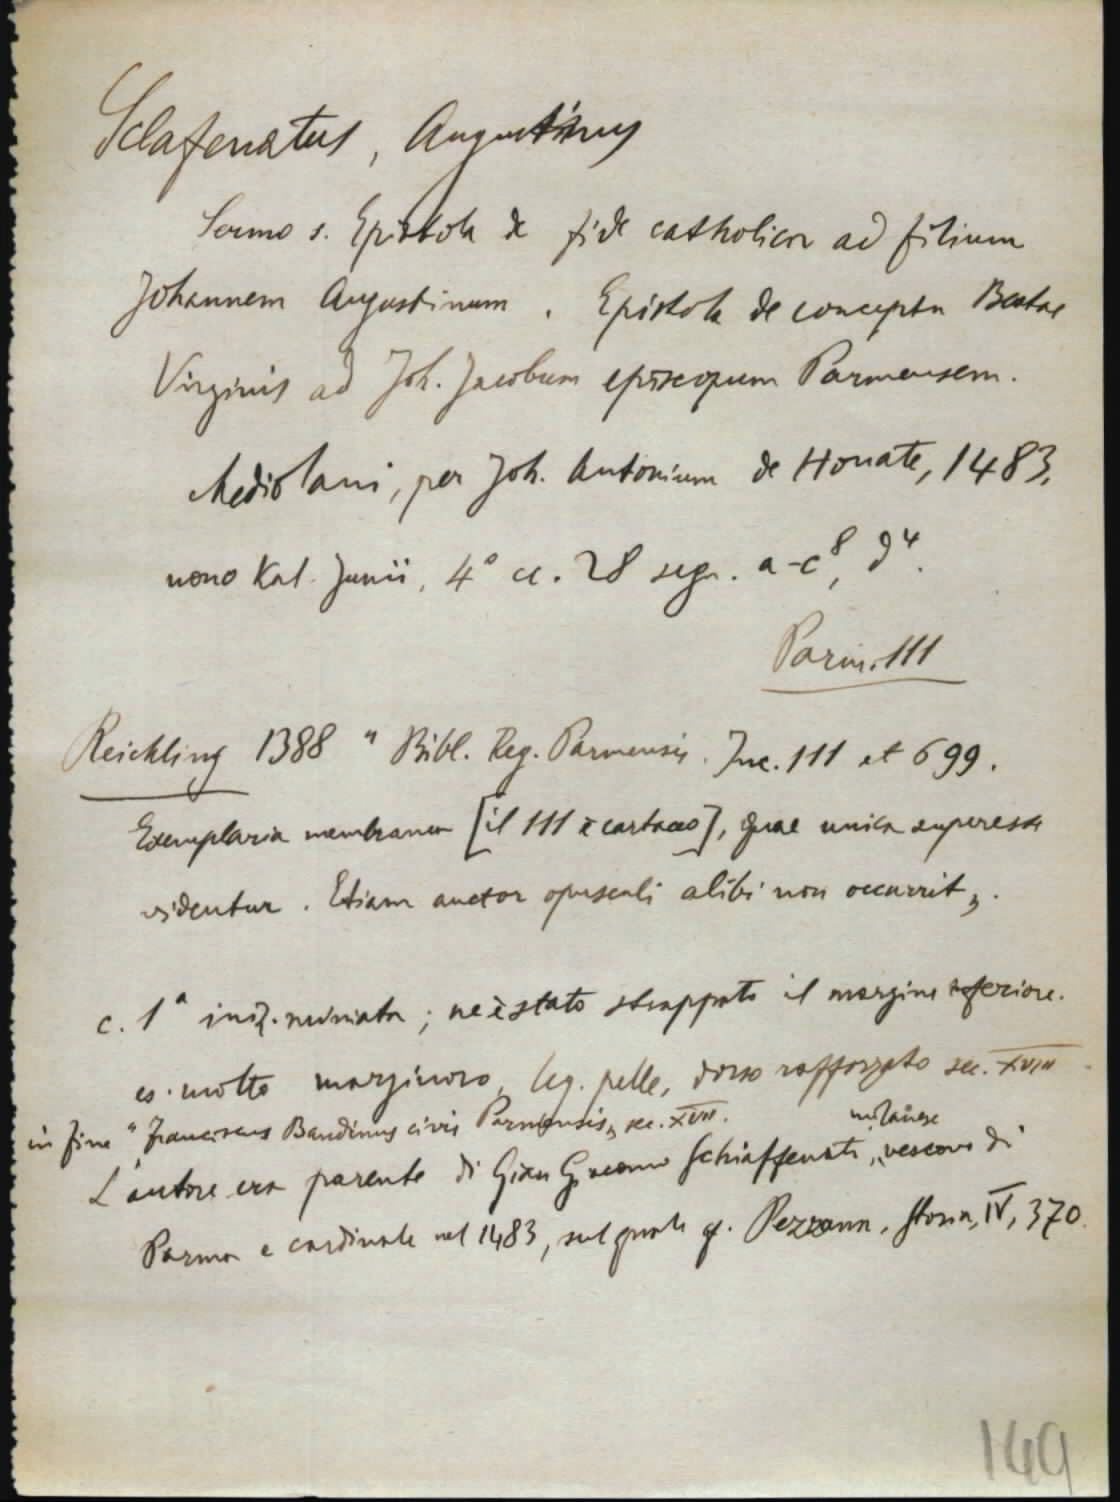 Sclafenatus, Augustinus
Sermo s. Epistola de fide catholica ad filium
Johannem Augustinum. Epistola de conceptu Beatae
Virginis ad Joh. Jacobum episcopum Parmensem.
Mediolani, per Joh. Antonium de Honate, 1483,
nono Kal. Junii, 4° cc. 28 segn. a-c⁸, d⁴.
Parm. 111
Reichling 1388 " Bibl. Reg. Parmensis. Inc. 111 et 699.
Exemplaria membranea [il 111 è cartaceo], quae unica superesse
videntur. Etiam auctor opusculi alibi non occurrit„.
c. 1ª iniz. miniata; ne è stato strappato il margine inferiore.
es. molto marginoso, leg. pelle, dorso rafforzato sec. XVIII
in fine " Franciscus Bandinus civis Parmensis„ sec. XVII.
milanese
L'autore era parente di Gian Giacomo Schiaffenati, vescovo di
Parma e cardinale nel 1483, sul quale cf. Pezzana, Storia, IV, 370.
149